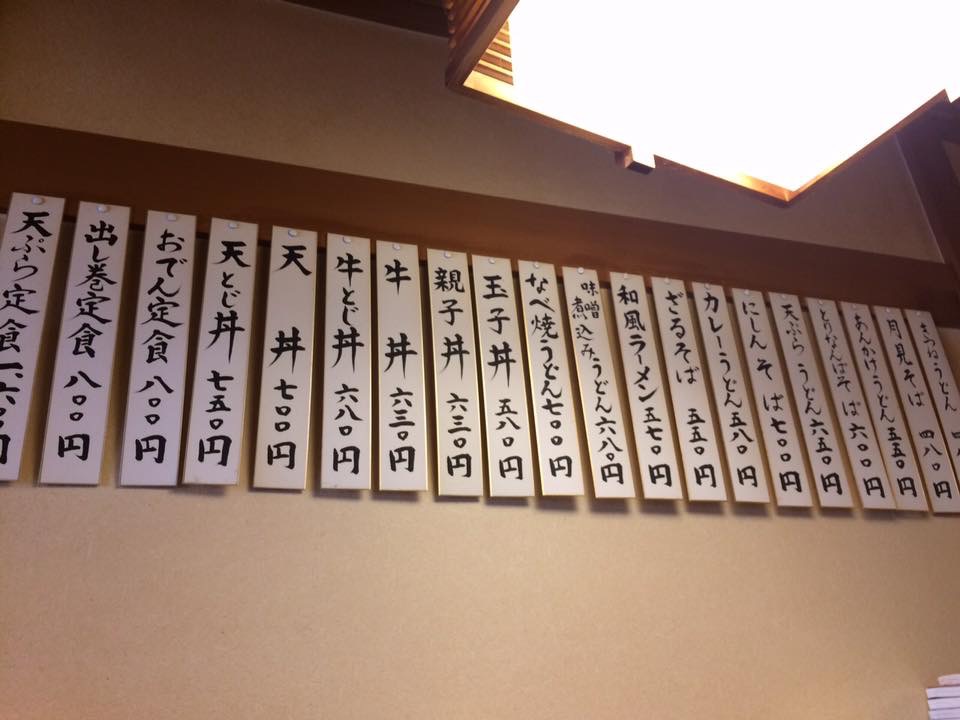 きつねうどん 四
月見そば 四八〇円
あんかけうどん 五五〇円
とりなんばそば 六〇〇円
天ぷらうどん 六五〇円
にしんそば 七〇〇円
カレーうどん 五八〇円
ざるそば 五五〇円
和風ラーメン 五七〇円
味噌煮込みうどん 六八〇円
なべ焼うどん 七〇〇円
玉子丼 五八〇円
親子丼 六三〇円
牛丼 六三〇円
牛とじ丼 六八〇円
天丼 七〇〇円
天とじ丼 七五〇円
おでん定食 八〇〇円
出し巻定食 八〇〇円
天ぷら定食 一六〇〇円